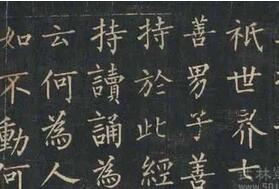 祇世界七
善男子善
持於此經
持讀誦為
云何為人
如不動何